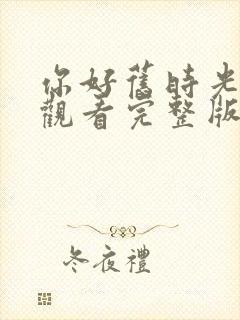 你好舊時光
觀看完整版
冬夜禮